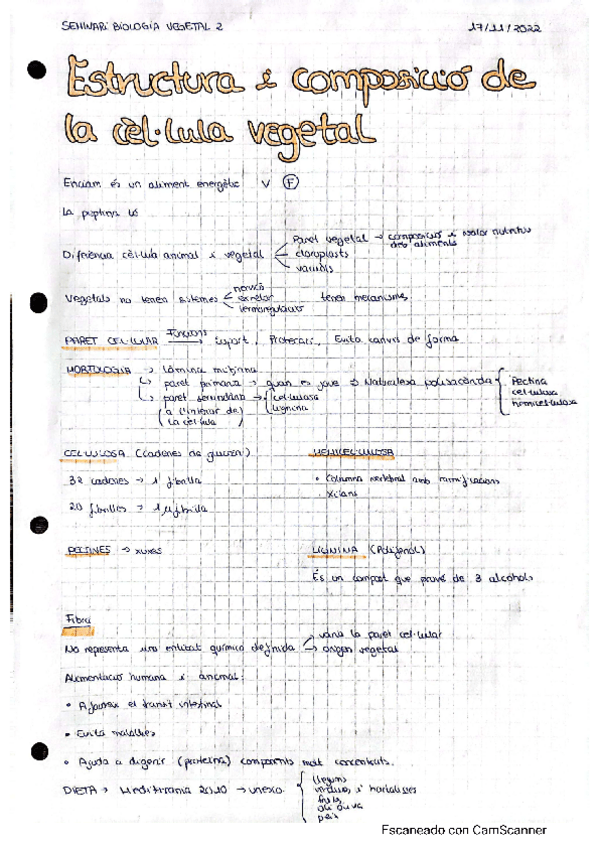 SEMINARI BIOLOGIA VEGETAL 2 17/11/2022
Estructura i composició de
la cèl·lula vegetal
Enciam és un aliment energètic V F
la
Diferència cèl·lula animal i vegetal
Paret vegetal → composició i valor nutritiu
dels aliments
cloroplasts
vacúols
Vegetals no tenen sistemes
nerviós
excretor
termoregulador
tenen mecanismes
PARET CEL·LULAR Funcions → Suport, Protecció, Evita canvis de forma
MORFOLOGIA → làmina mitjana
↳ paret primària → quan és jove → Naturalesa polisacàrida
Pectina
cel·lulosa
hemicel·lulosa
↳ paret secundària →
(a l'interior de
la cèl·lula)
cel·lulosa
lignina
CEL·LULOSA (Cadenes de glucosa)
32 cadenes → 1 fibrilla
20 fibrilles → 1
HEMICEL·LULOSA
• Columna vertebral amb ramificacions
• Xilans
PECTINES →
LIGNINA (Polifenol)
És un compost que prové de 3 alcohols
Fibra
No representa una entitat química definida
→ varia la paret cel·lular
→ origen vegetal
Alimentació humana i animal:
• Afavoreix el trànsit intestinal
• Evita malalties
• Ajuda a digerir (proteïna) components molt concentrats.
DIETA → Mediterrània 2010 → unesco.
llegums
verdures i hortalisses
fruits
oli oliva
peix
Escaneado con CamScanner